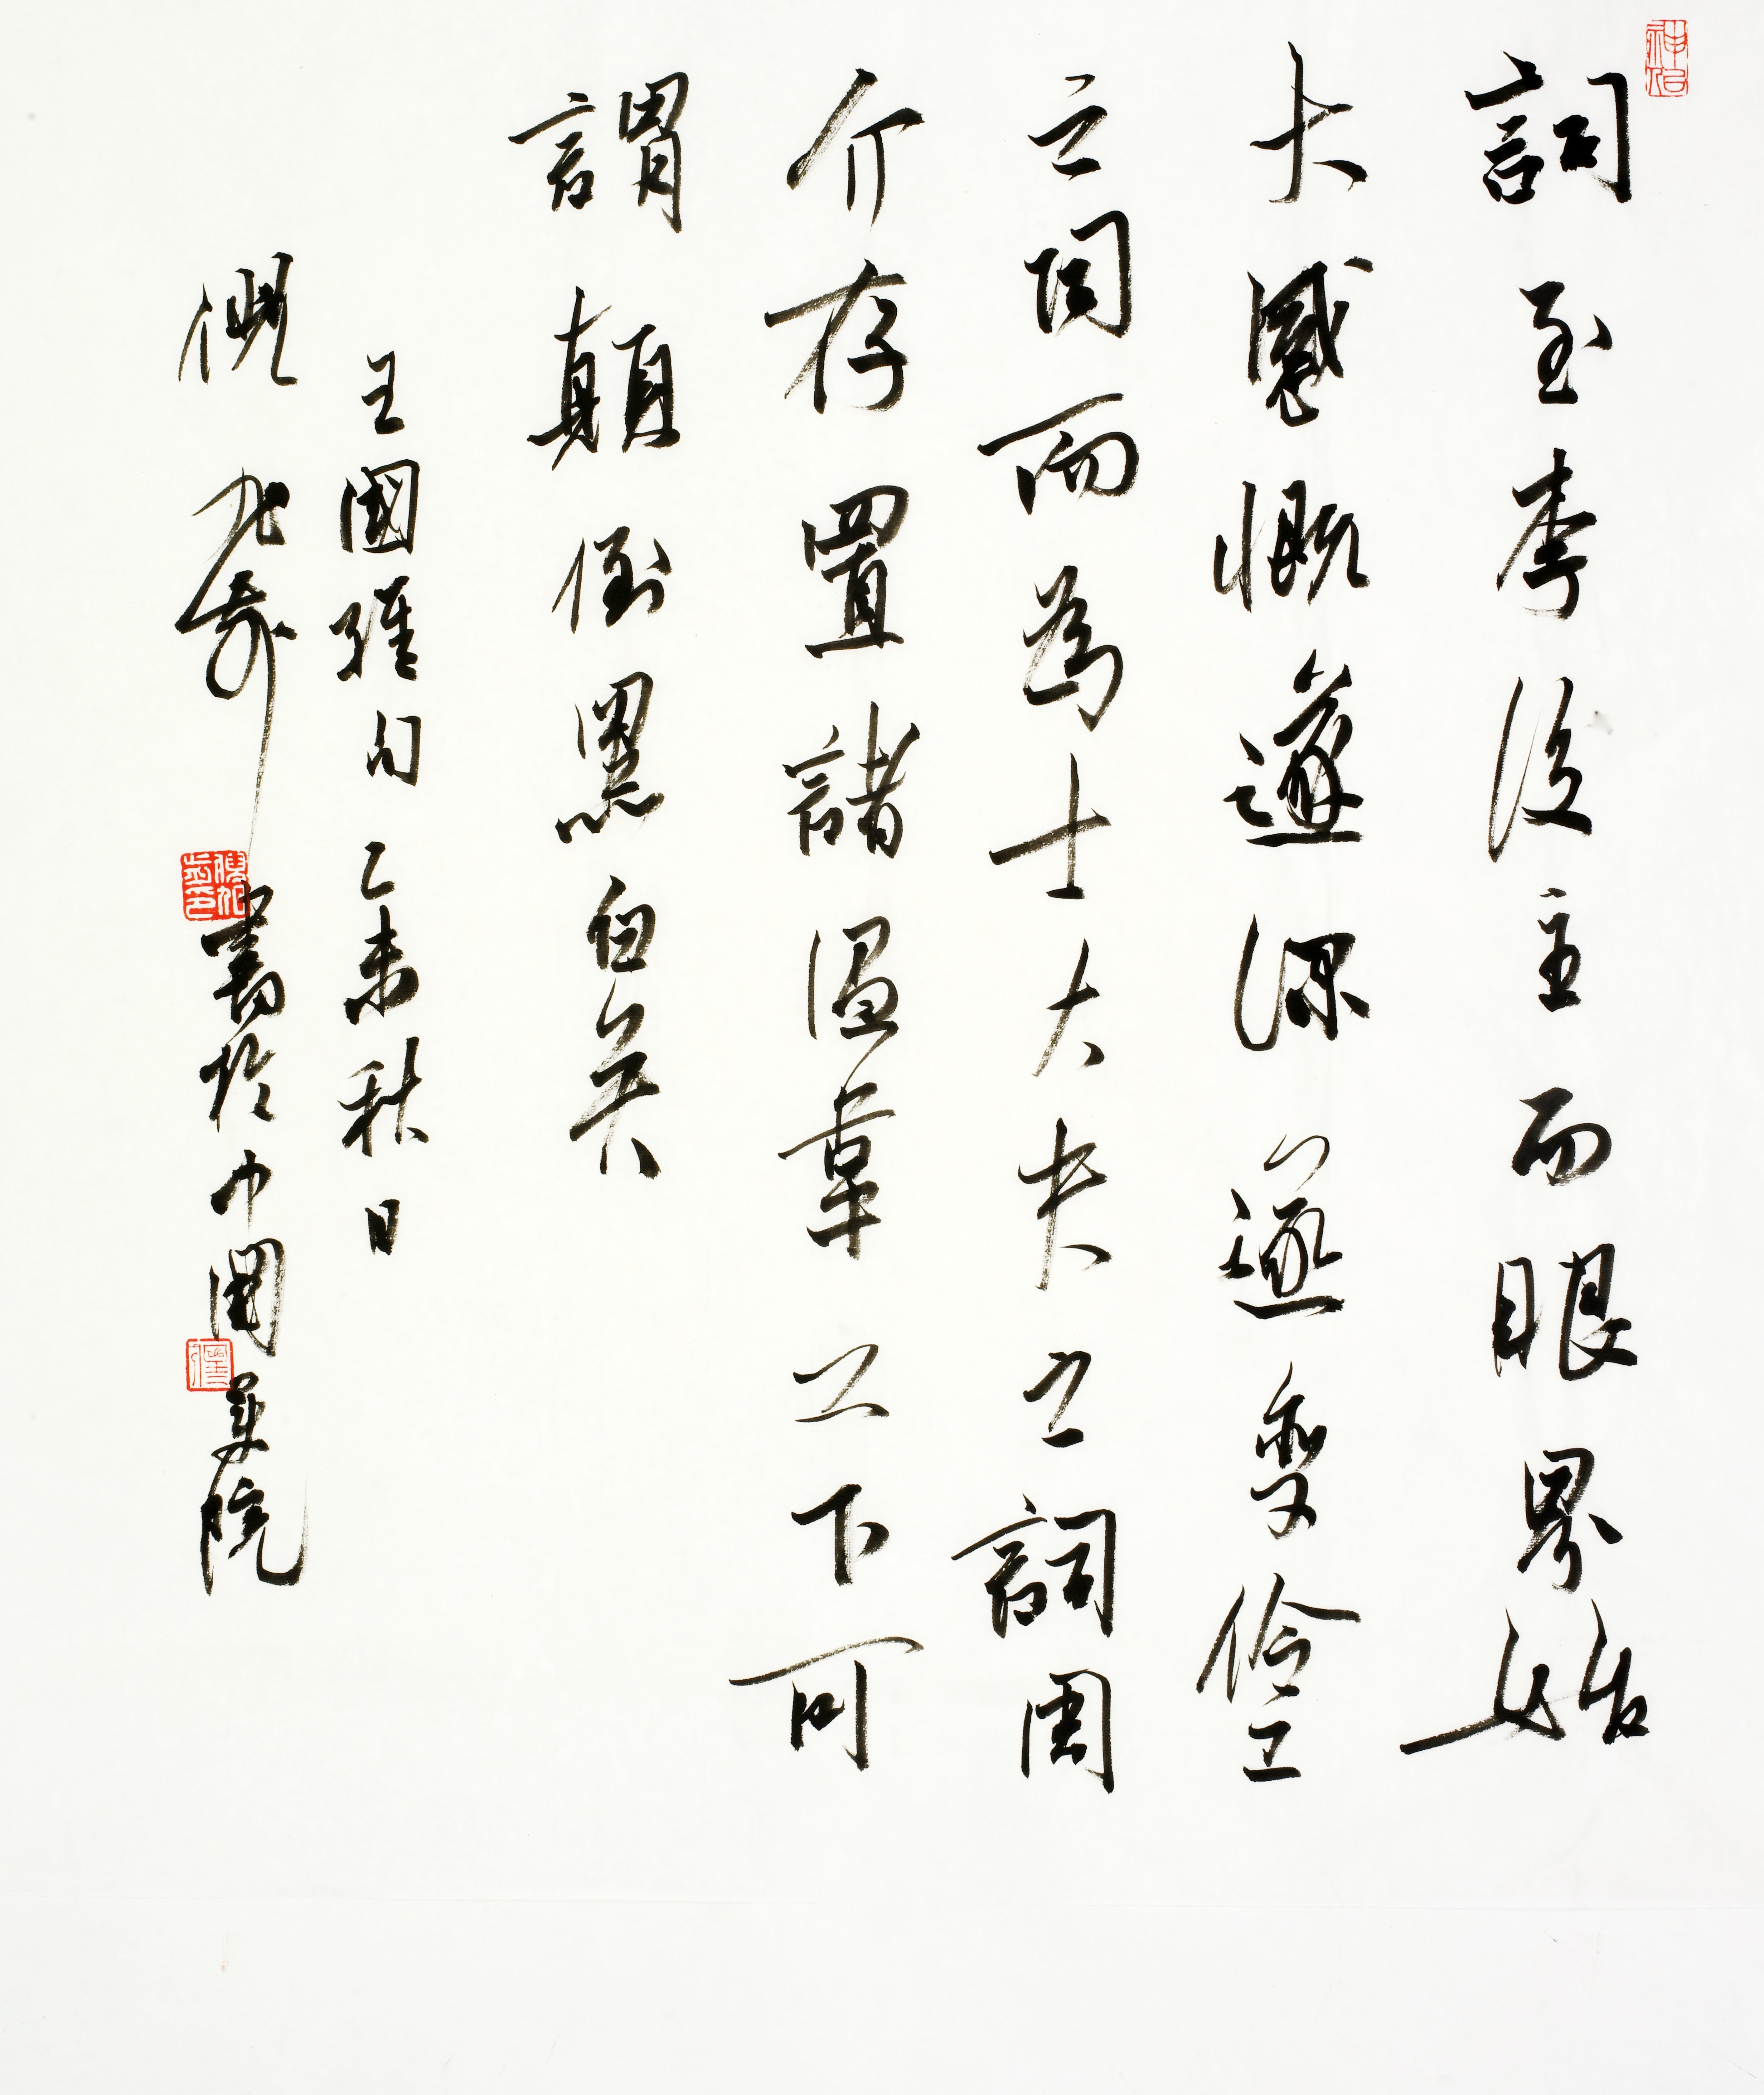 詞至李後主而眼界始
大感慨遂深遂變伶工
之詞而為士大夫之詞周
介存置諸溫韋之下可
謂顛倒黑白矣
王國維句乙未秋日
倪 書於中國美院